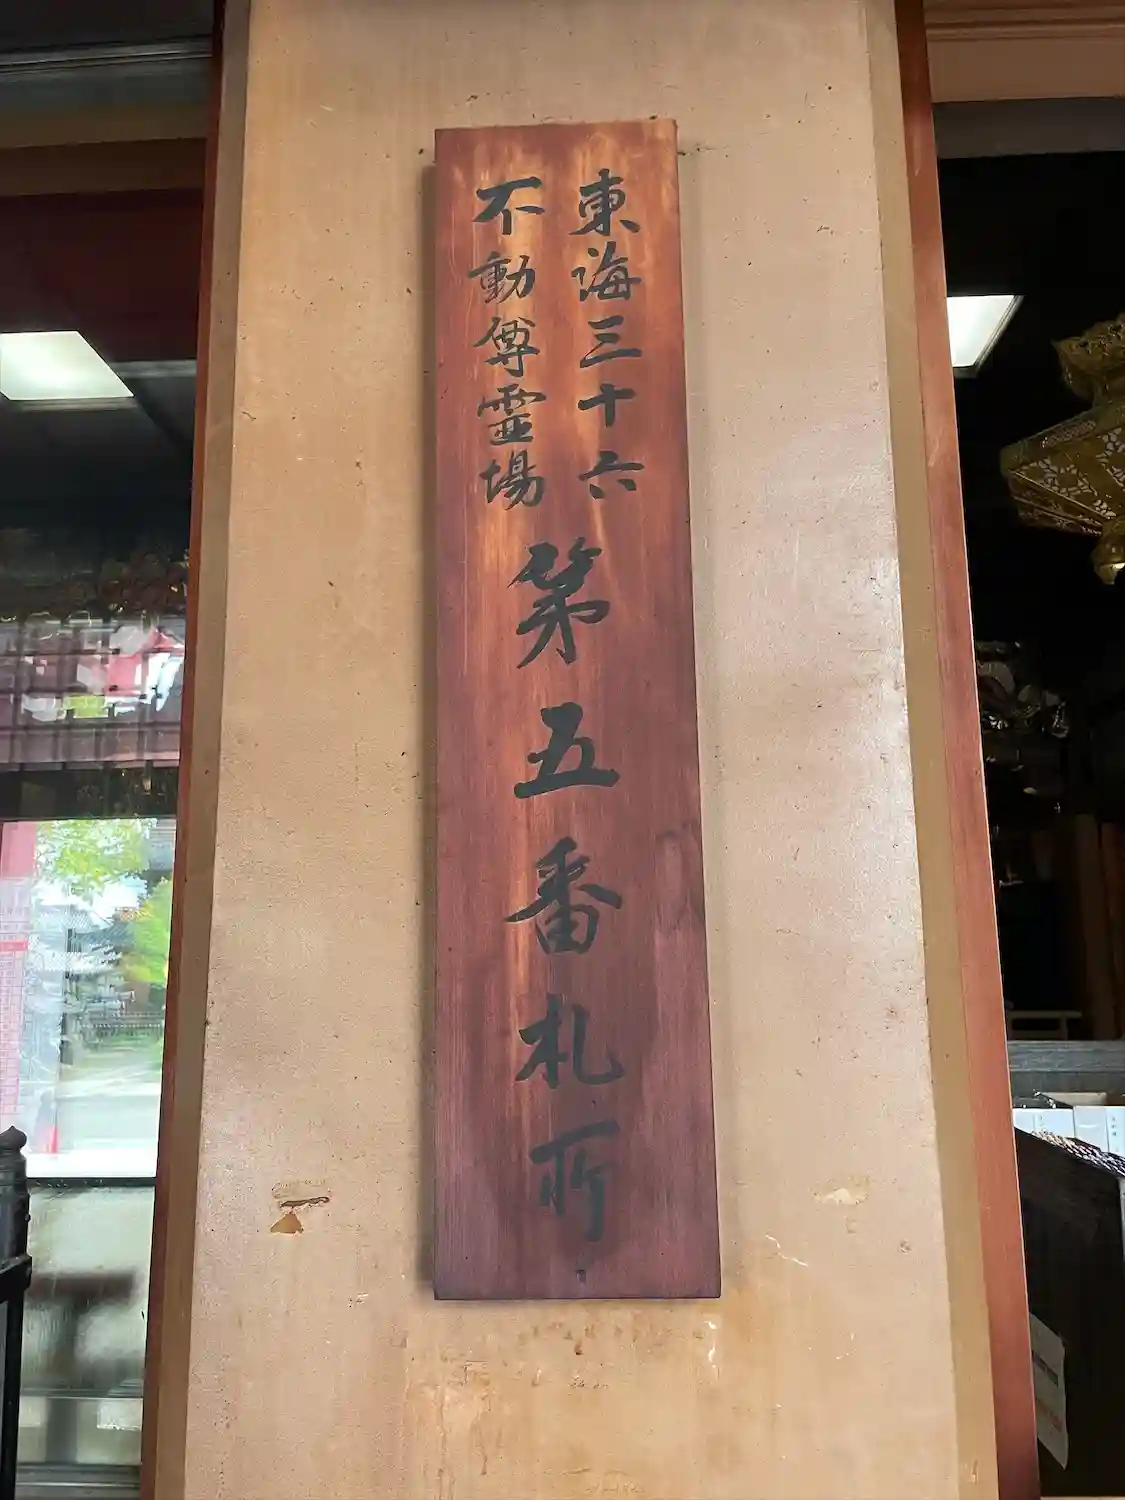 東海三十六
不動尊霊場
第五番札所